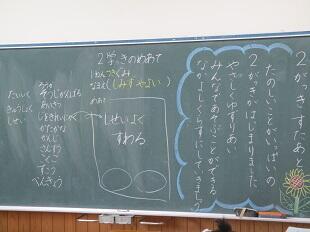 2がっきスタあと
たのしいことがいっぱいの
2がっきがはじまりました
やさしくゆずりあい
みんなであそぶことができる
なかよしくらすにしていきましょう
2学きのめあて
1ねんつきぐみ
なまえ(しみずやよい)
めあて
しせいよく
すわる
そうじ
あいさつ
かたかな
かんじ
さんすう
こくご
ずこう
べんきょう
たいいく
きゅうしょく
しせい